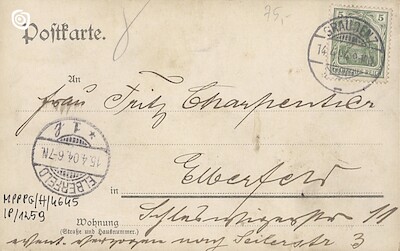 75,-
5 5
Postkarte.
GRAUDENZ
14.4.04
An
Frau Fritz Charpentier
* 1 l
15.4.04.6-7N.
ELBERFELD
Elberfeld
in
MPPPG/H/4645
/P/1259
Wohnung
(Straße und Hausnummer.)
Schleswigerstr 11
event. verzogen nach Seilerstr 3